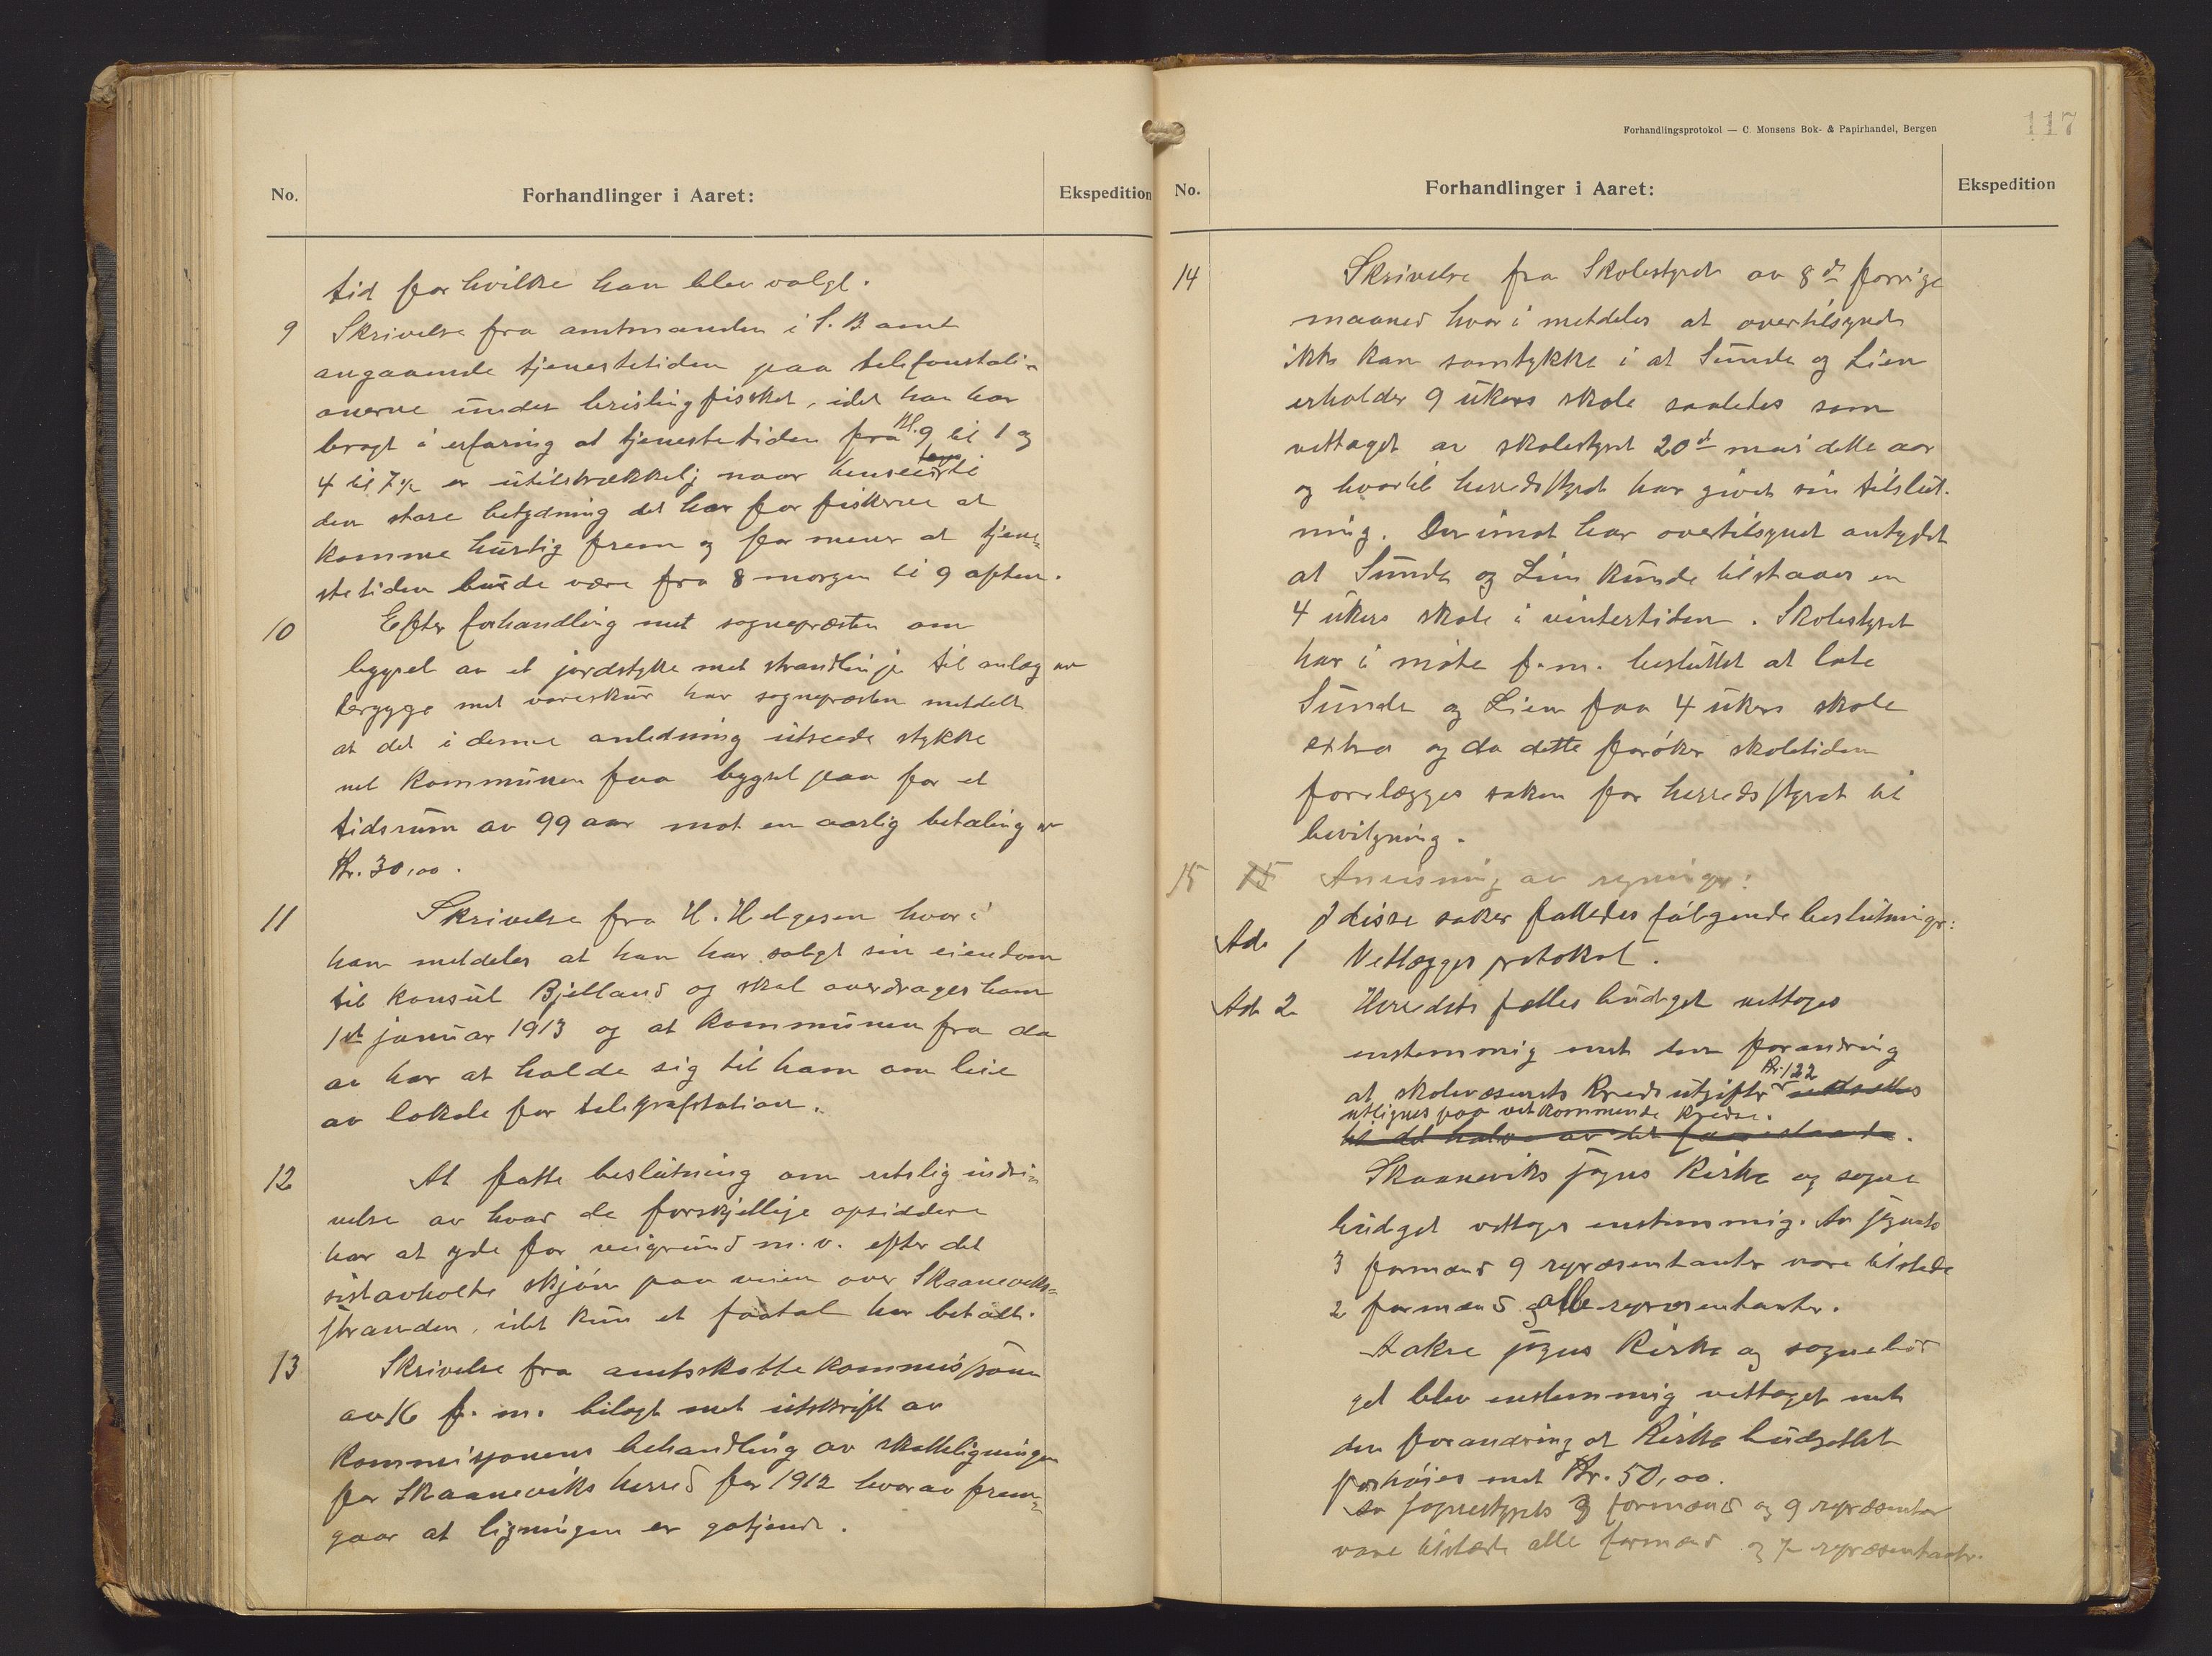 No.
Forhandlinger i Aaret:
Ekspedition
tid for hvilke han blev valgt.
9 Skrivelse fra amtmanden i S. B. amt
angaaende tjenestetiden paa telefonstati-
onerne under brislingfisket, idet han har
bragt i erfaring at tjenestetiden fra kl. 9 til 1 og
4 til 7½ er utilstrækkelig naar hensees til
den store betydning det har for fiskerne at
komme hurtig frem og for mener at tjene-
stetiden burde være fra 8 morgen til 9 aften.
10 Efter forhandling met sognepresten om
bygsel av et jordstykke met strandlinje til anlæg av
brygge met vareskur har sognepresten metdelt
at det i denne anledning utseede stykke
vil kommunen faa bygsel paa for et
tidsrum av 99 aar mot en aarlig betaling av
Kr. 30,00.
11 Skrivelse fra H. Helgesen hvori
han metdeler at han har solgt sin eiendom
til konsul Bjelland og skal overdrages ham
1st januar 1913 og at kommunen fra da
av har at holde sig til ham om leie
av lokale for telegrafstation.
12 At fatte beslutning om utlig inddri-
velse av hvad de forskjellige opsiddere
har at yde for veigrund m. v. efter det
sist avholte skjøn paa veien over Skaaneviks-
stranden, idet kun et faatal har betalt.
13 Skrivelse fra amtsskattekommissionen
av 16 f. m. bilagt met utskrift av
kommisjonens behandling av skatteligningen
for Skaaneviks herred for 1912 hvorav frem-
gaar at ligningen er gotkjendt.
Forhandlingsprotokol — C. Monsens Bok- & Papirhandel, Bergen
117
No.
Forhandlinger i Aaret:
Ekspedition
14 Skrivelse fra Skolestyret av 8de forrige
maaned hvori metdeles at overtilsynet
ikke kan samtykke i at Sunde og Lien
erholder 9 ukers skole saaledes som
vettaget av skolestyret 20de mai dette aar
og hvortil herredsstyret har givet sin tilslut-
ning. Derimot har overtilsynet antydet
at Sunde og Lien kunde tilstaaes en
4 ukers skole i vintertiden. Skolestyret
har i møte f. m. besluttet at late
Sunde og Lien faa 4 ukers skole
extra og da dette forøker skoletiden
forelægges saken for herredsstyret til
bevilgning.
15 15 Anvisning av regninger:
I disse saker fattedes følgende beslutninger:
Ad. 1 Vetlægges protokol.
Ad 2 Herredets fælles budget vettages
enstemmig met den forandring
at skolevæsenets kredsutgifter Kr. 122
utlignes paa vetkommende kredse.
til det halve av det foreslaaede.
Skaaneviks sogns kirke og sogne
budget vettages enstemmig. Av sognets
3 formænd 9 repræsentanter vare tilstede
2 formænd og alle repræsentanter.
Aakre sogns kirke og sognebud
get blev enstemmig vettaget met
den forandring at kirkebudgettet
forhøies met Kr. 50,00.
Av sognestyrets 3 formænd og 9 repræsentan
vare tilstede alle formænd og 7 repræsentanter.